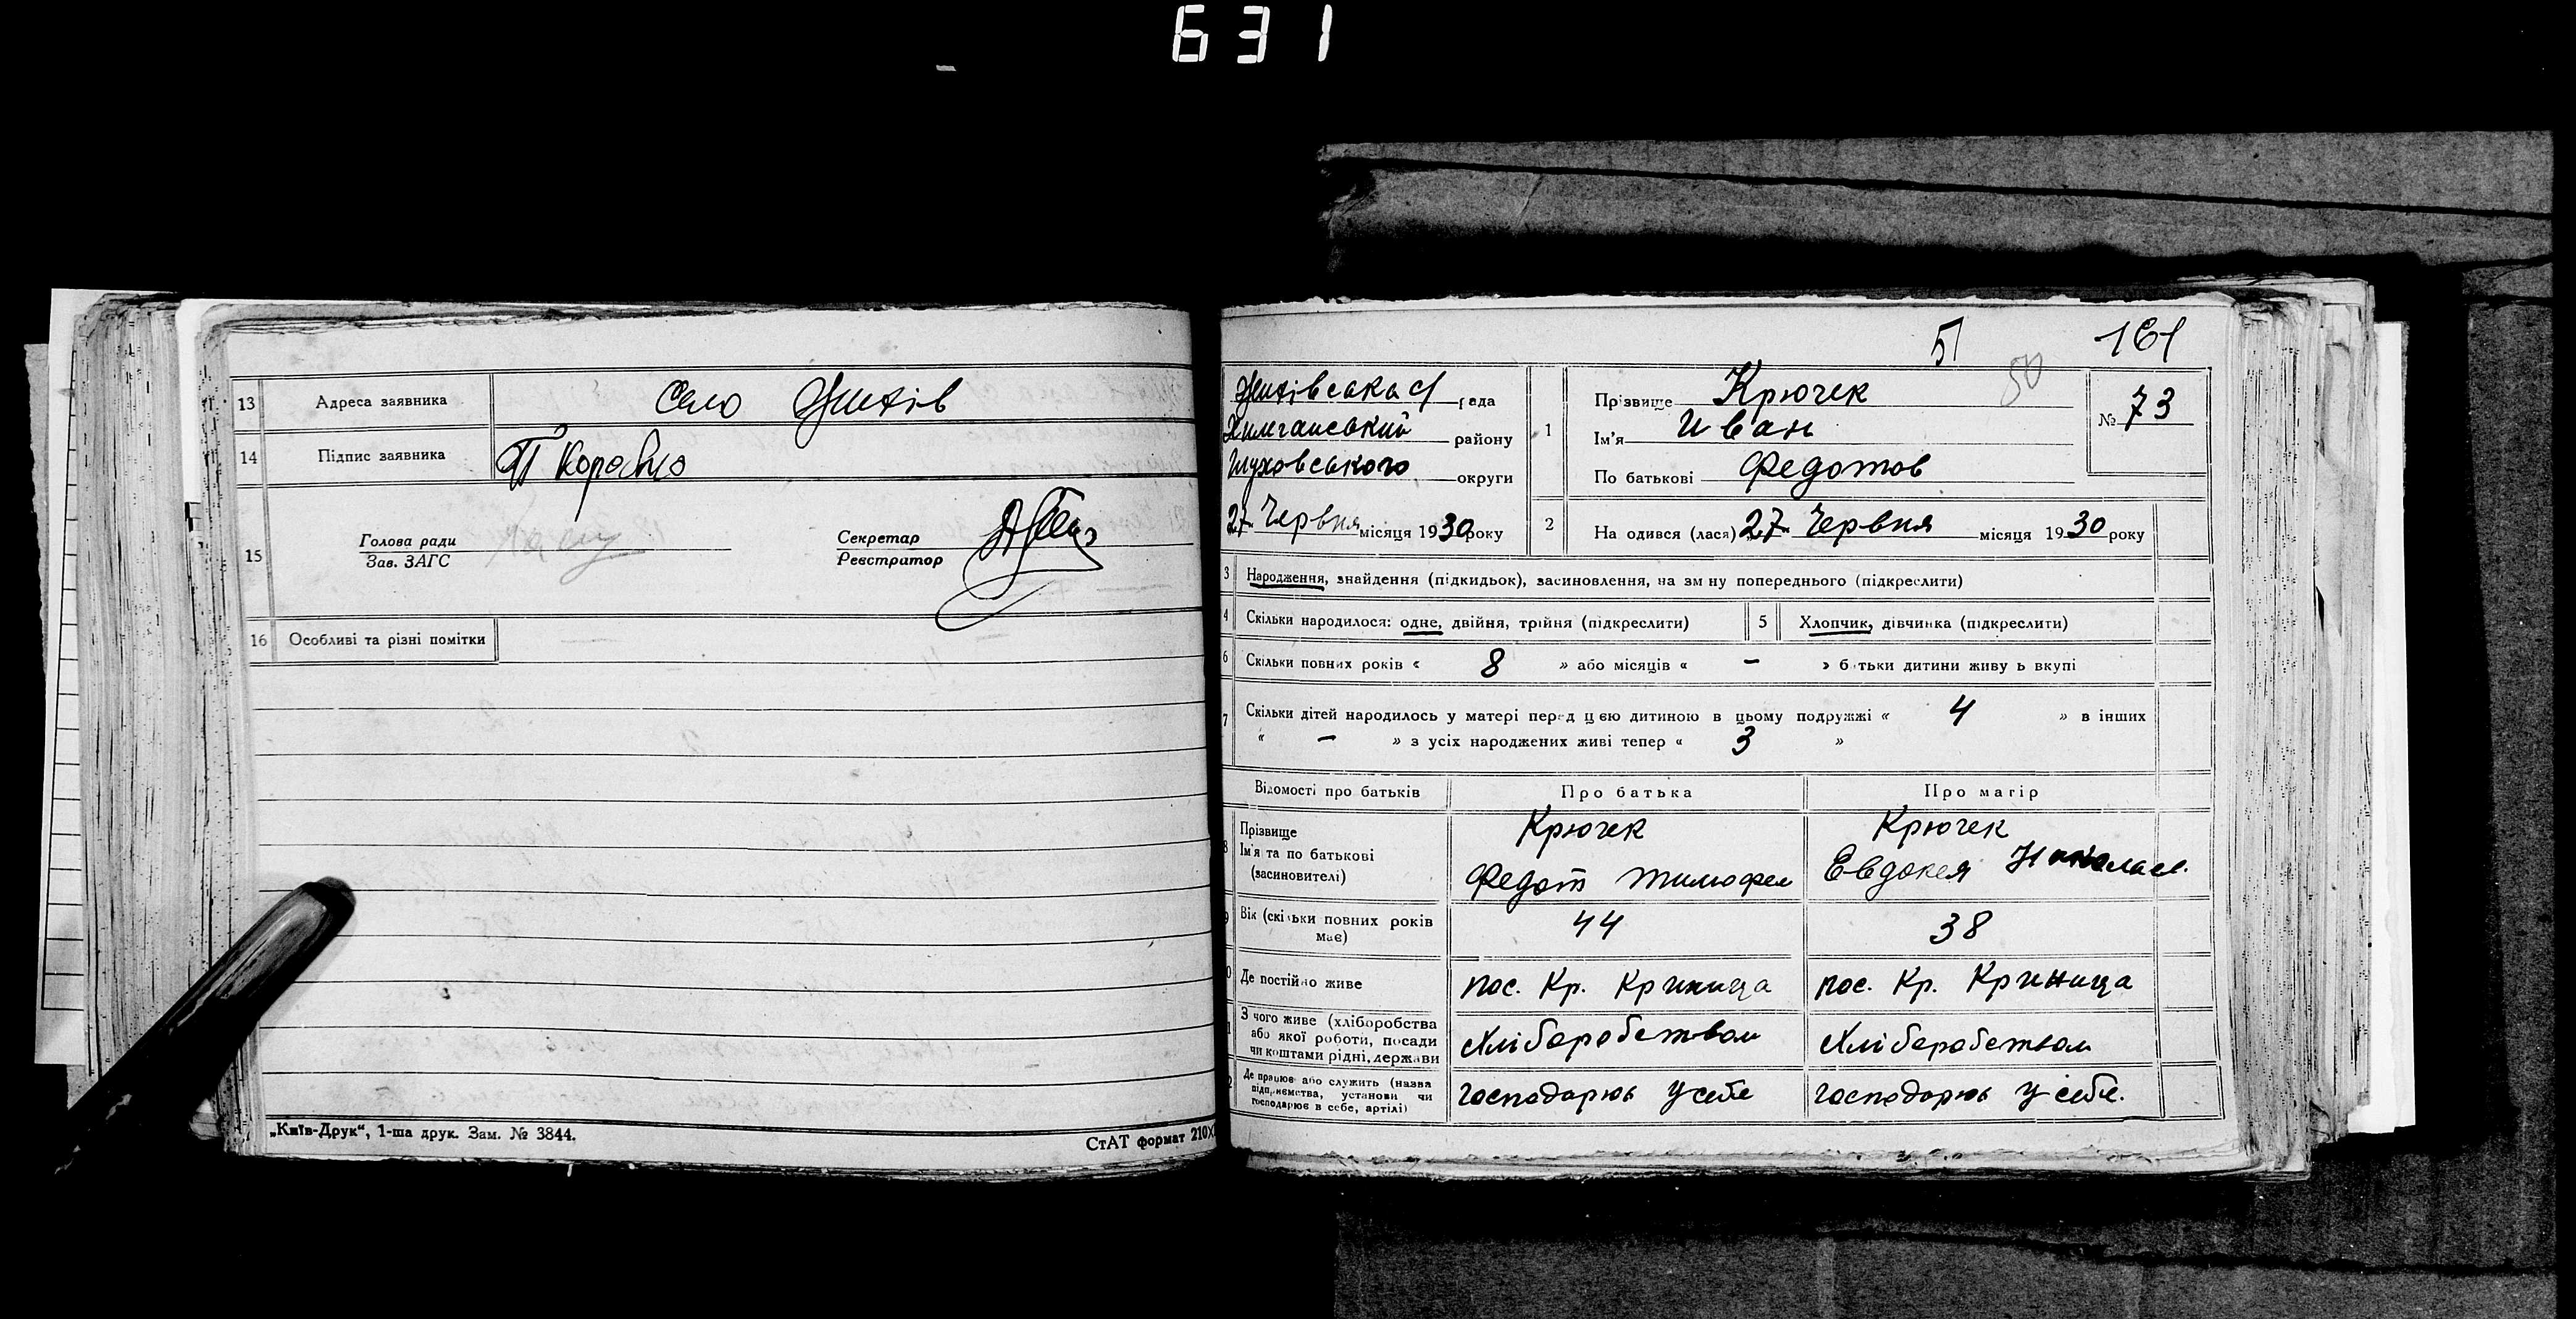 631
13 Адреса заявника Село Жихів
14 Підпис заявника П Коробко
15 Голова ради
Зав. ЗАГС
Секретар
Реєстратор
16 Особливі та різні помітки
„Київ-Друк“, 1-ша друк. Зам. № 3844.
СтАТ формат 210X
51 50 161
Жихівська с/ рада
Хильчанський району
Глуховського округи
27 Червня місяця 1930 року
1 Прізвище Крючек
Ім'я Иван
По батькові Федотов
№ 73
2 На одився (лася) 27 Червня місяця 1930 року
3 Народження, знайдення (підкидьок), засиновлення, на зм ну попереднього (підкреслити)
4 Скільки народилося: одне, двійня, трійня (підкреслити) 5 Хлопчик, дівчинка (підкреслити)
6 Скільки повних років « 8 » або місяців « – » батьки дитини живу ь вкупі
7 Скільки дітей народилось у матері перед цією дитиною в цьому подружжі « 4 » в інших
« – » з усіх народжених живі тепер « 3 »
Відомості про батьків Про батька Про матір
8 Прізвище Крючек Крючек
Ім'я та по батькові
(засиновителі) Федот Тимофеи Евдокея
9 Вік (скільки повних років
має) 44 38
Де постійно живе пос. Кр. Криница пос. Кр. Криница
З чого живе (хліборобства
або якої роботи, посади
чи коштами рідні, держави Хліборобством Хліборобством
Де працює або служить (назва
підприємства, установи чи
господарює в себе, артілі) господарює у себе господарює у себе.